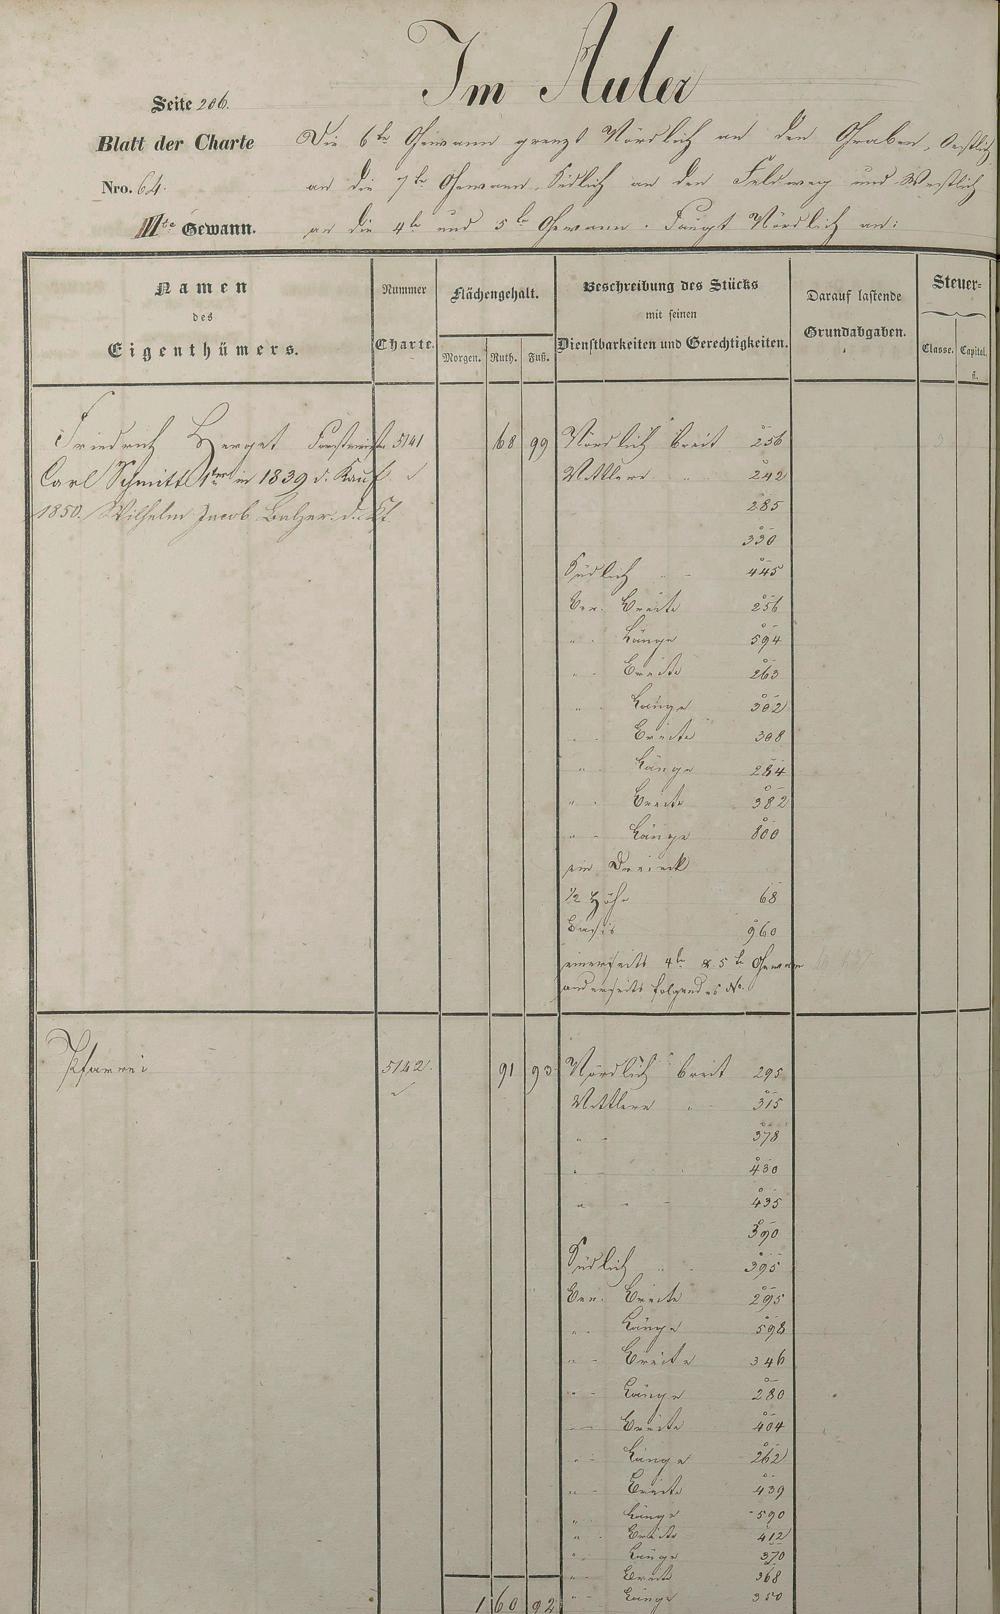 Im Auler
Seite 206.
Blatt der Charte
Nro. 64.
IIIte Gewann.
Die 6te Gewann grenzt Nördlich an den Graben, Oestlich
an die 7te Gewann, Südlich an den Feldweg und Westlich
an die 4te und 5te Gewann. Faengt Nördlich an:
Namen
des
Eigenthümers.
Nummer
Charte.
Flächengehalt.
Morgen. Ruth. Fuß.
Beschreibung des Stücks
mit seinen
Dienstbarkeiten und Gerechtigkeiten.
Darauf lastende
Grundabgaben.
Steuer=
Classe. Capital.
fl.
Friedrich Herget Forstmeister 5141 68 99 Nördlich breit 256
Carl Schmitt 1ter in 1839 d. Kauf Mittlere " 242
1850. Wilhelm Jacob Balzer. d. Kf 285
330
Südlich " 445
Ver. Breite 256
" Länge 594
" Breite 263
" Länge 302
" Breite 308
" Länge 284
" Breite 382
" Länge 800
ein Dreieck
1/2 Höhe 68
Basis 960
einerseits 4te & 5te Gewann
anderseits folgendes No.
Pfarrei 5142. 91 93 Nördlich breit 295
Mittlere " 315
" 378
" 430
" 435
390
Südlich " 395
Ver. Breite 295
" Länge 598
" Breite 346
" Länge 280
" Breite 404
" Länge 262
" Breite 439
" Länge 590
" Breite 412
" Länge 370
" Breite 368
" Länge 350
1 60 92